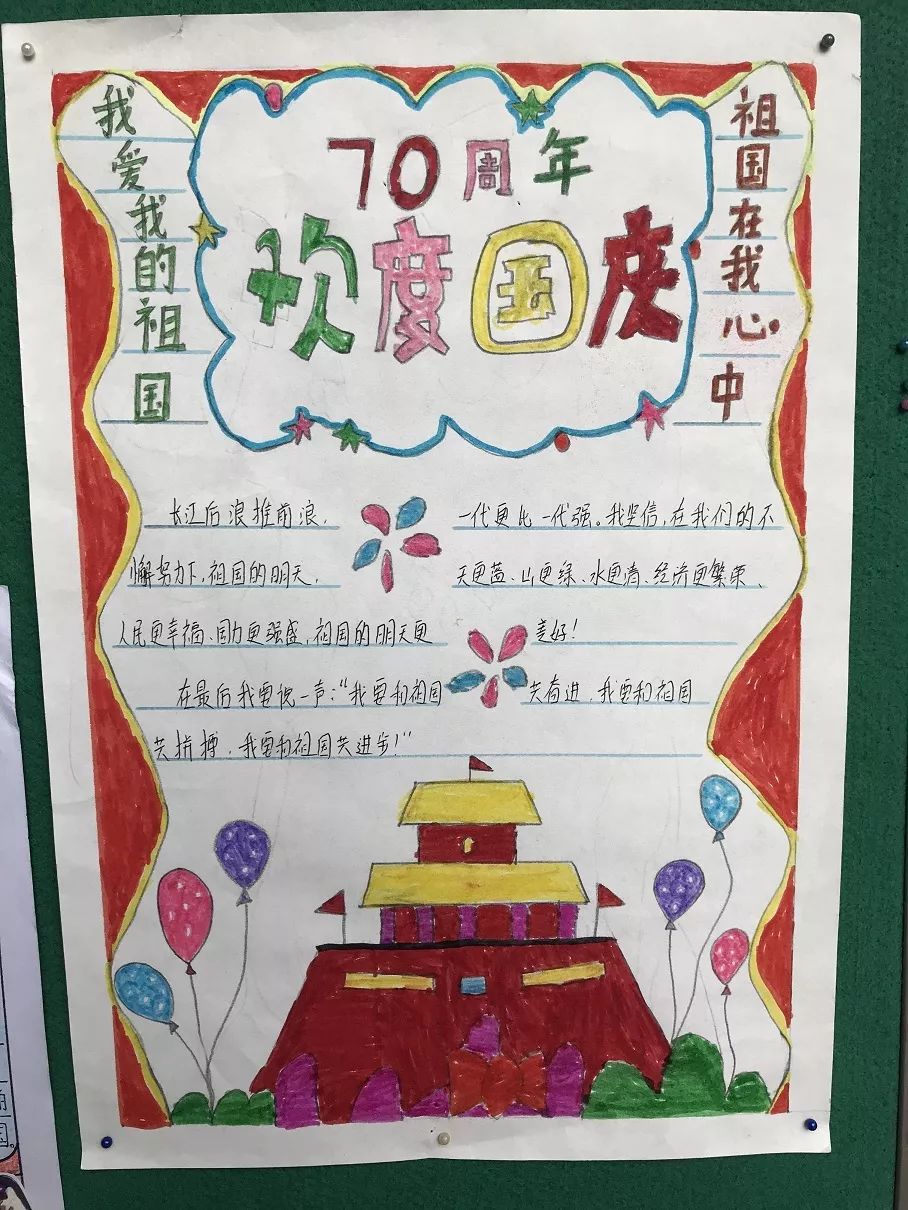 我爱我的祖国
70周年
欢度国庆
祖国在我心中
长江后浪推前浪，一代更比一代强。我坚信，在我们的不
懈努力下，祖国的明天，天更蓝、山更绿、水更清、经济更繁荣、
人民更幸福、国力更强盛，祖国的明天更美好！
在最后我要说一声：“我要和祖国共奋进，我要和祖国
共拼搏，我要和祖国共进步！”